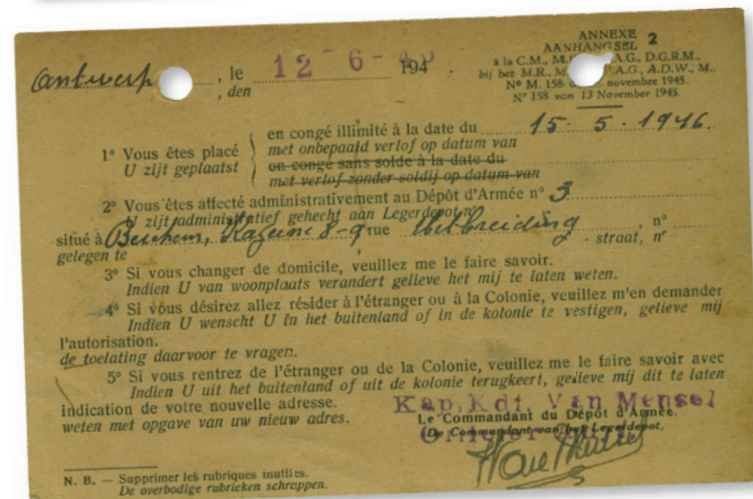 ANNEXE 2
AANHANGSEL
à la C.M., M. A.G., D.G.R.M.,
bij het M.R., M. P.A.G., A.D.W., M.
Nº M. 158 novembre 1945.
Nº 158 van 13 November 1945.
Antwerp, le 12-6- 194
, den
en congé illimité à la date du 15. 5. 1946.
1º Vous êtes placé met onbepaald verlof op datum van
U zijt geplaatst en congé sans solde à la date du
met verlof zonder soldij op datum van
2º Vous êtes affecté administrativement au Dépôt d'Armée nº 3
U zijt administratief gehecht aan Legerdepot nº
situé à Berchem, Kazerne 8-9 rue Uitbreiding, nº
gelegen te straat, nr
3º Si vous changer de domicile, veuillez me le faire savoir.
Indien U van woonplaats verandert gelieve het mij te laten weten.
4º Si vous désirez allez résider à l'étranger ou à la Colonie, veuillez m'en demander
Indien U wenscht U in het buitenland of in de kolonie te vestigen, gelieve mij
l'autorisation.
de toelating daarvoor te vragen.
5º Si vous rentrez de l'étranger ou de la Colonie, veuillez me le faire savoir avec
Indien U uit het buitenland of uit de kolonie terugkeert, gelieve mij dit te laten
indication de votre nouvelle adresse.
weten met opgave van uw nieuw adres.
Kap. Kdt. Van Mensel
Le Commandant du Dépôt d'Armée.
De Commandant van het Legerdepot,
N. B. — Supprimer les rubriques inutiles.
De overbodige rubrieken schrappen.